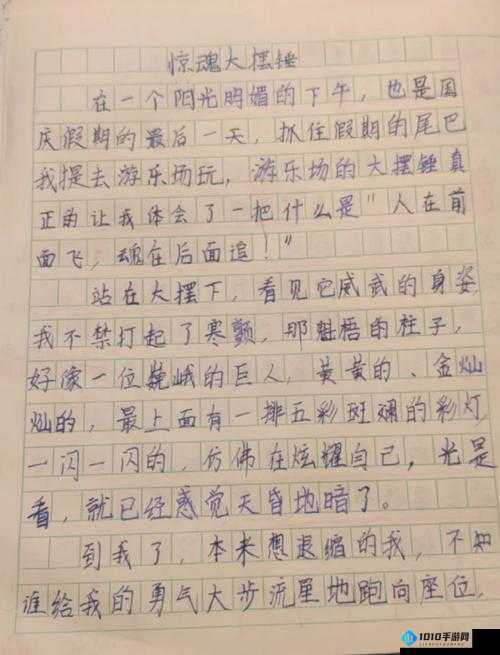 惊魂大摆锤
在一个阳光明媚的下午，也是国
庆假期的最后一天，抓住假期的尾巴
我提去游乐场玩，游乐场的大摆锤真
正的让我体会了一把什么是"人在前
面飞，魂在后面追！"
站在大摆下，看见它威武的身姿
我不禁打起了寒颤，那魁梧的柱子，
好像一位巍峨的巨人，黄黄的、金灿
灿的，最上面有一排五彩斑斓的彩灯
一闪一闪的，仿佛在炫耀自己，光是
看，就已经感觉天昏地暗了。
到我了，本来想退缩的我，不知
谁给我的勇气大步流星地跑向座位，
1010手游网
www.1010sy.com